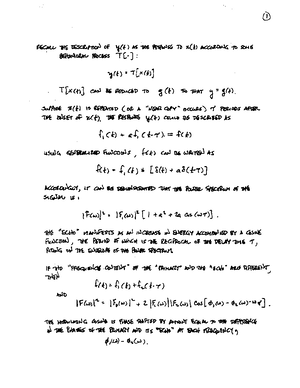 1
RECALL THE DESCRIPTION OF y(t) AS THE RESPONSE TO x(t) ACCORDING TO SOME
BEHAVIORAL PROCESS T[·] :
y(t) = T[x(t)]
T[x(t)] CAN BE REDUCED TO g(t) SO THAT y = g(t).
SUPPOSE x(t) IS REPEATED (OR A "NEAR COPY" OCCURS) T PERIODS AFTER
THE ONSET OF x(t). THE RESPONSE y(t) COULD BE DESCRIBED AS
f₁(t) + a f₁(t-τ) = f(t)
USING GENERALIZED FUNCTIONS, f(t) CAN BE WRITTEN AS
f(t) = f₁(t) * [δ(t) + aδ(t-τ)]
ACCORDINGLY, IT CAN BE DEMONSTRATED THAT THE POWER SPECTRUM OF THE
SIGNAL IS :
|F(ω)|² = |F₁(ω)|² [1 + a² + 2a cos(ωτ)].
THE "ECHO" MANIFESTS AS AN INCREASE IN ENERGY ACCOMPANIED BY A COSINE
FUNCTION, THE PERIOD OF WHICH IS THE RECIPROCAL OF THE DELAY TIME τ,
RIDING ON THE ENVELOPE OF THE POWER SPECTRUM.
IF THE "FREQUENCE CONTENT" OF THE "PRIMARY" AND THE "ECHO" ARE DIFFERENT,
THEN
f(t) = f₁(t) + f₂(t-τ)
AND
THE MODULATING COSINE IS PHASE SHIFTED BY AMOUNT EQUAL TO THE DIFFERENCE
IN THE PHASES OF THE PRIMARY AND ITS "ECHO" AT EACH FREQUENCY,